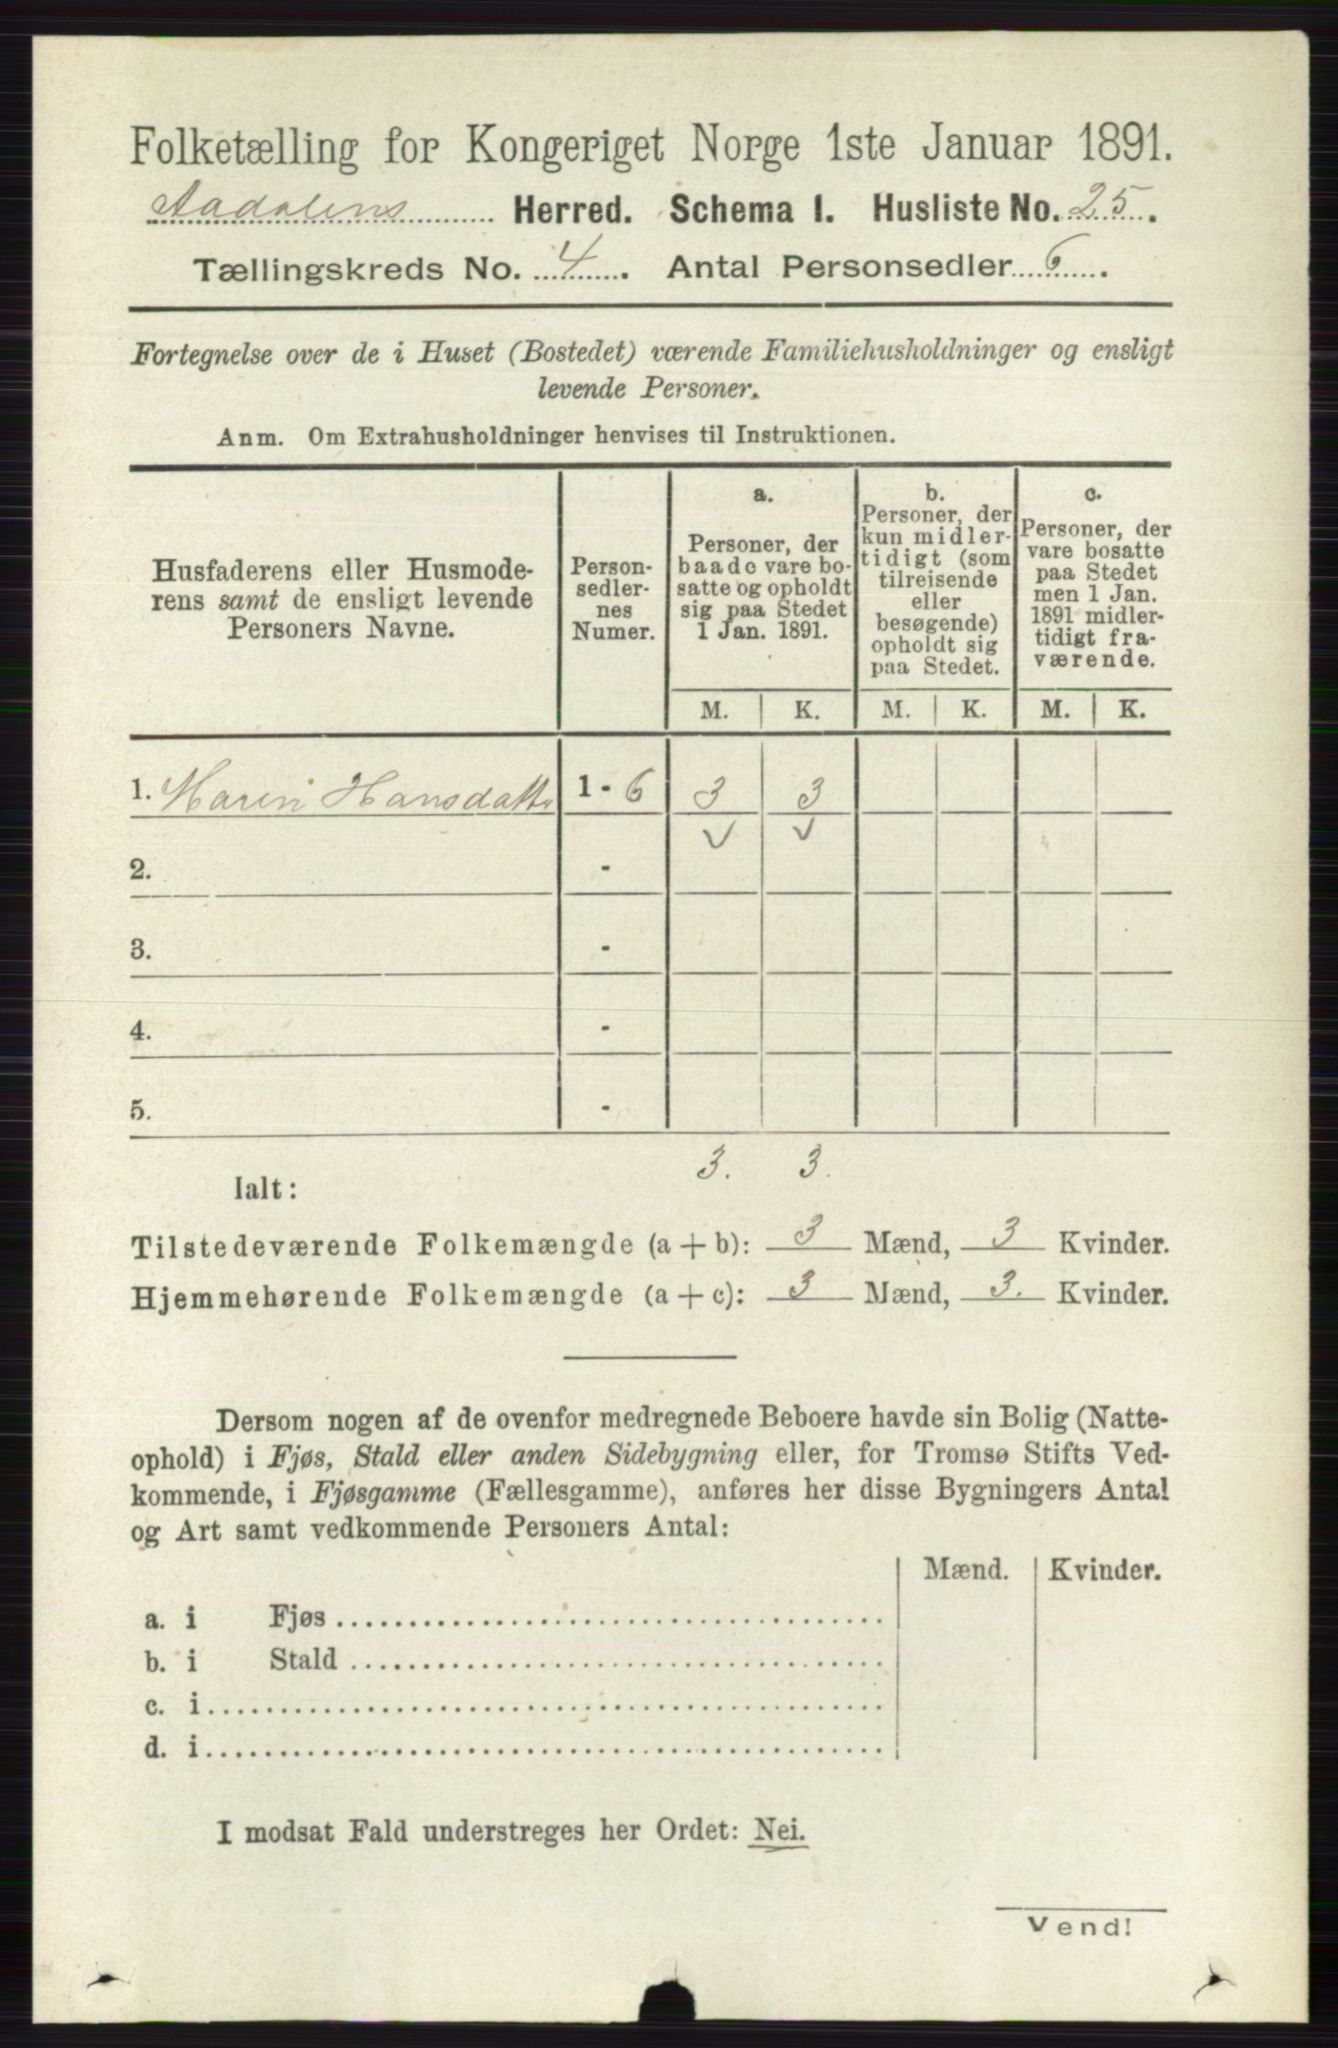 Folketælling for Kongeriget Norge 1ste Januar 1891.
Aadalens Herred. Schema 1. Husliste No. 25.
Tællingskreds No. 4. Antal Personsedler 6.
Fortegnelse over de i Huset (Bostedet) værende Familiehusholdninger og ensligt
levende Personer.
Anm. Om Extrahusholdninger henvises til Instruktionen.
Husfaderens eller Husmode-
rens samt de ensligt levende
Personers Navne.
Person-
sedler-
nes
Numer.
a.
Personer, der
baade vare bo-
satte og opholdt
sig paa Stedet
1 Jan. 1891.
b.
Personer, der
kun midler-
tidigt (som
tilreisende
eller
besøgende)
opholdt sig
paa Stedet.
c.
Personer, der
vare bosatte
paa Stedet
men 1 Jan.
1891 midler-
tidigt fra-
værende.
M. K. M. K. M. K.
1. Maren Hansdatter 1 - 6 3 3
2. -
3. -
4. -
5. -
3. 3.
Ialt:
Tilstedeværende Folkemængde (a + b): 3 Mænd, 3 Kvinder.
Hjemmehørende Folkemængde (a + c): 3 Mænd, 3. Kvinder.
Dersom nogen af de ovenfor medregnede Beboere havde sin Bolig (Natte-
ophold) i Fjøs, Stald eller anden Sidebygning eller, for Tromsø Stifts Ved-
kommende, i Fjøsgamme (Fællesgamme), anføres her disse Bygningers Antal
og Art samt vedkommende Personers Antal:
Mænd. Kvinder.
a. i Fjøs
b. i Stald
c. i
d. i
I modsat Fald understreges her Ordet: Nei.
Vend!